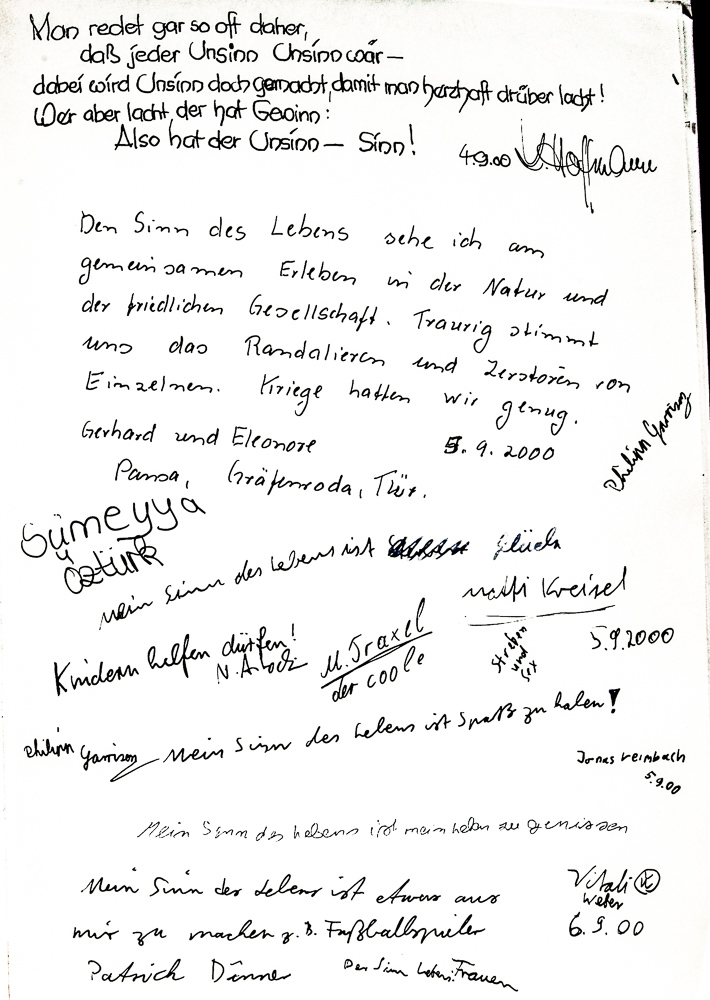 Man redet gar so oft daher,
daß jeder Unsinn Unsinn wär –
dabei wird Unsinn doch gemacht, damit man herzhaft drüber lacht!
Wer aber lacht, der hat Gewinn:
Also hat der Unsinn – Sinn!
4.9.00 Hoffmann
Den Sinn des Lebens sehe ich am
gemeinsamen Erleben in der Natur und
der friedlichen Gesellschaft. Traurig stimmt
uns das Randalieren und Zerstören von
Einzelnen. Kriege hatten wir genug.
Gerhard und Eleonore 5.9.2000
Pansa, Gräfenroda, Thür.
Philipp Garrison
Sümeyya
Öztürk
Mein Sinn des Lebens ist Glück
Matti Kreisel
5.9.2000
Kindern helfen dürfen!
M. Traxel
der coole
Streben
und
Sex
Philipp Garrison Mein Sinn des Lebens ist Spaß zu haben!
Jonas Reimbach
5.9.00
Mein Sinn des Lebens ist mein Leben zu genissen
Vitali
Weber
6.9.00
Mein Sinn des Lebens ist etwas aus
mir zu machen z.B. Fußballspieler
Patrick Dinner
Der Sinn Lebens: Frauen